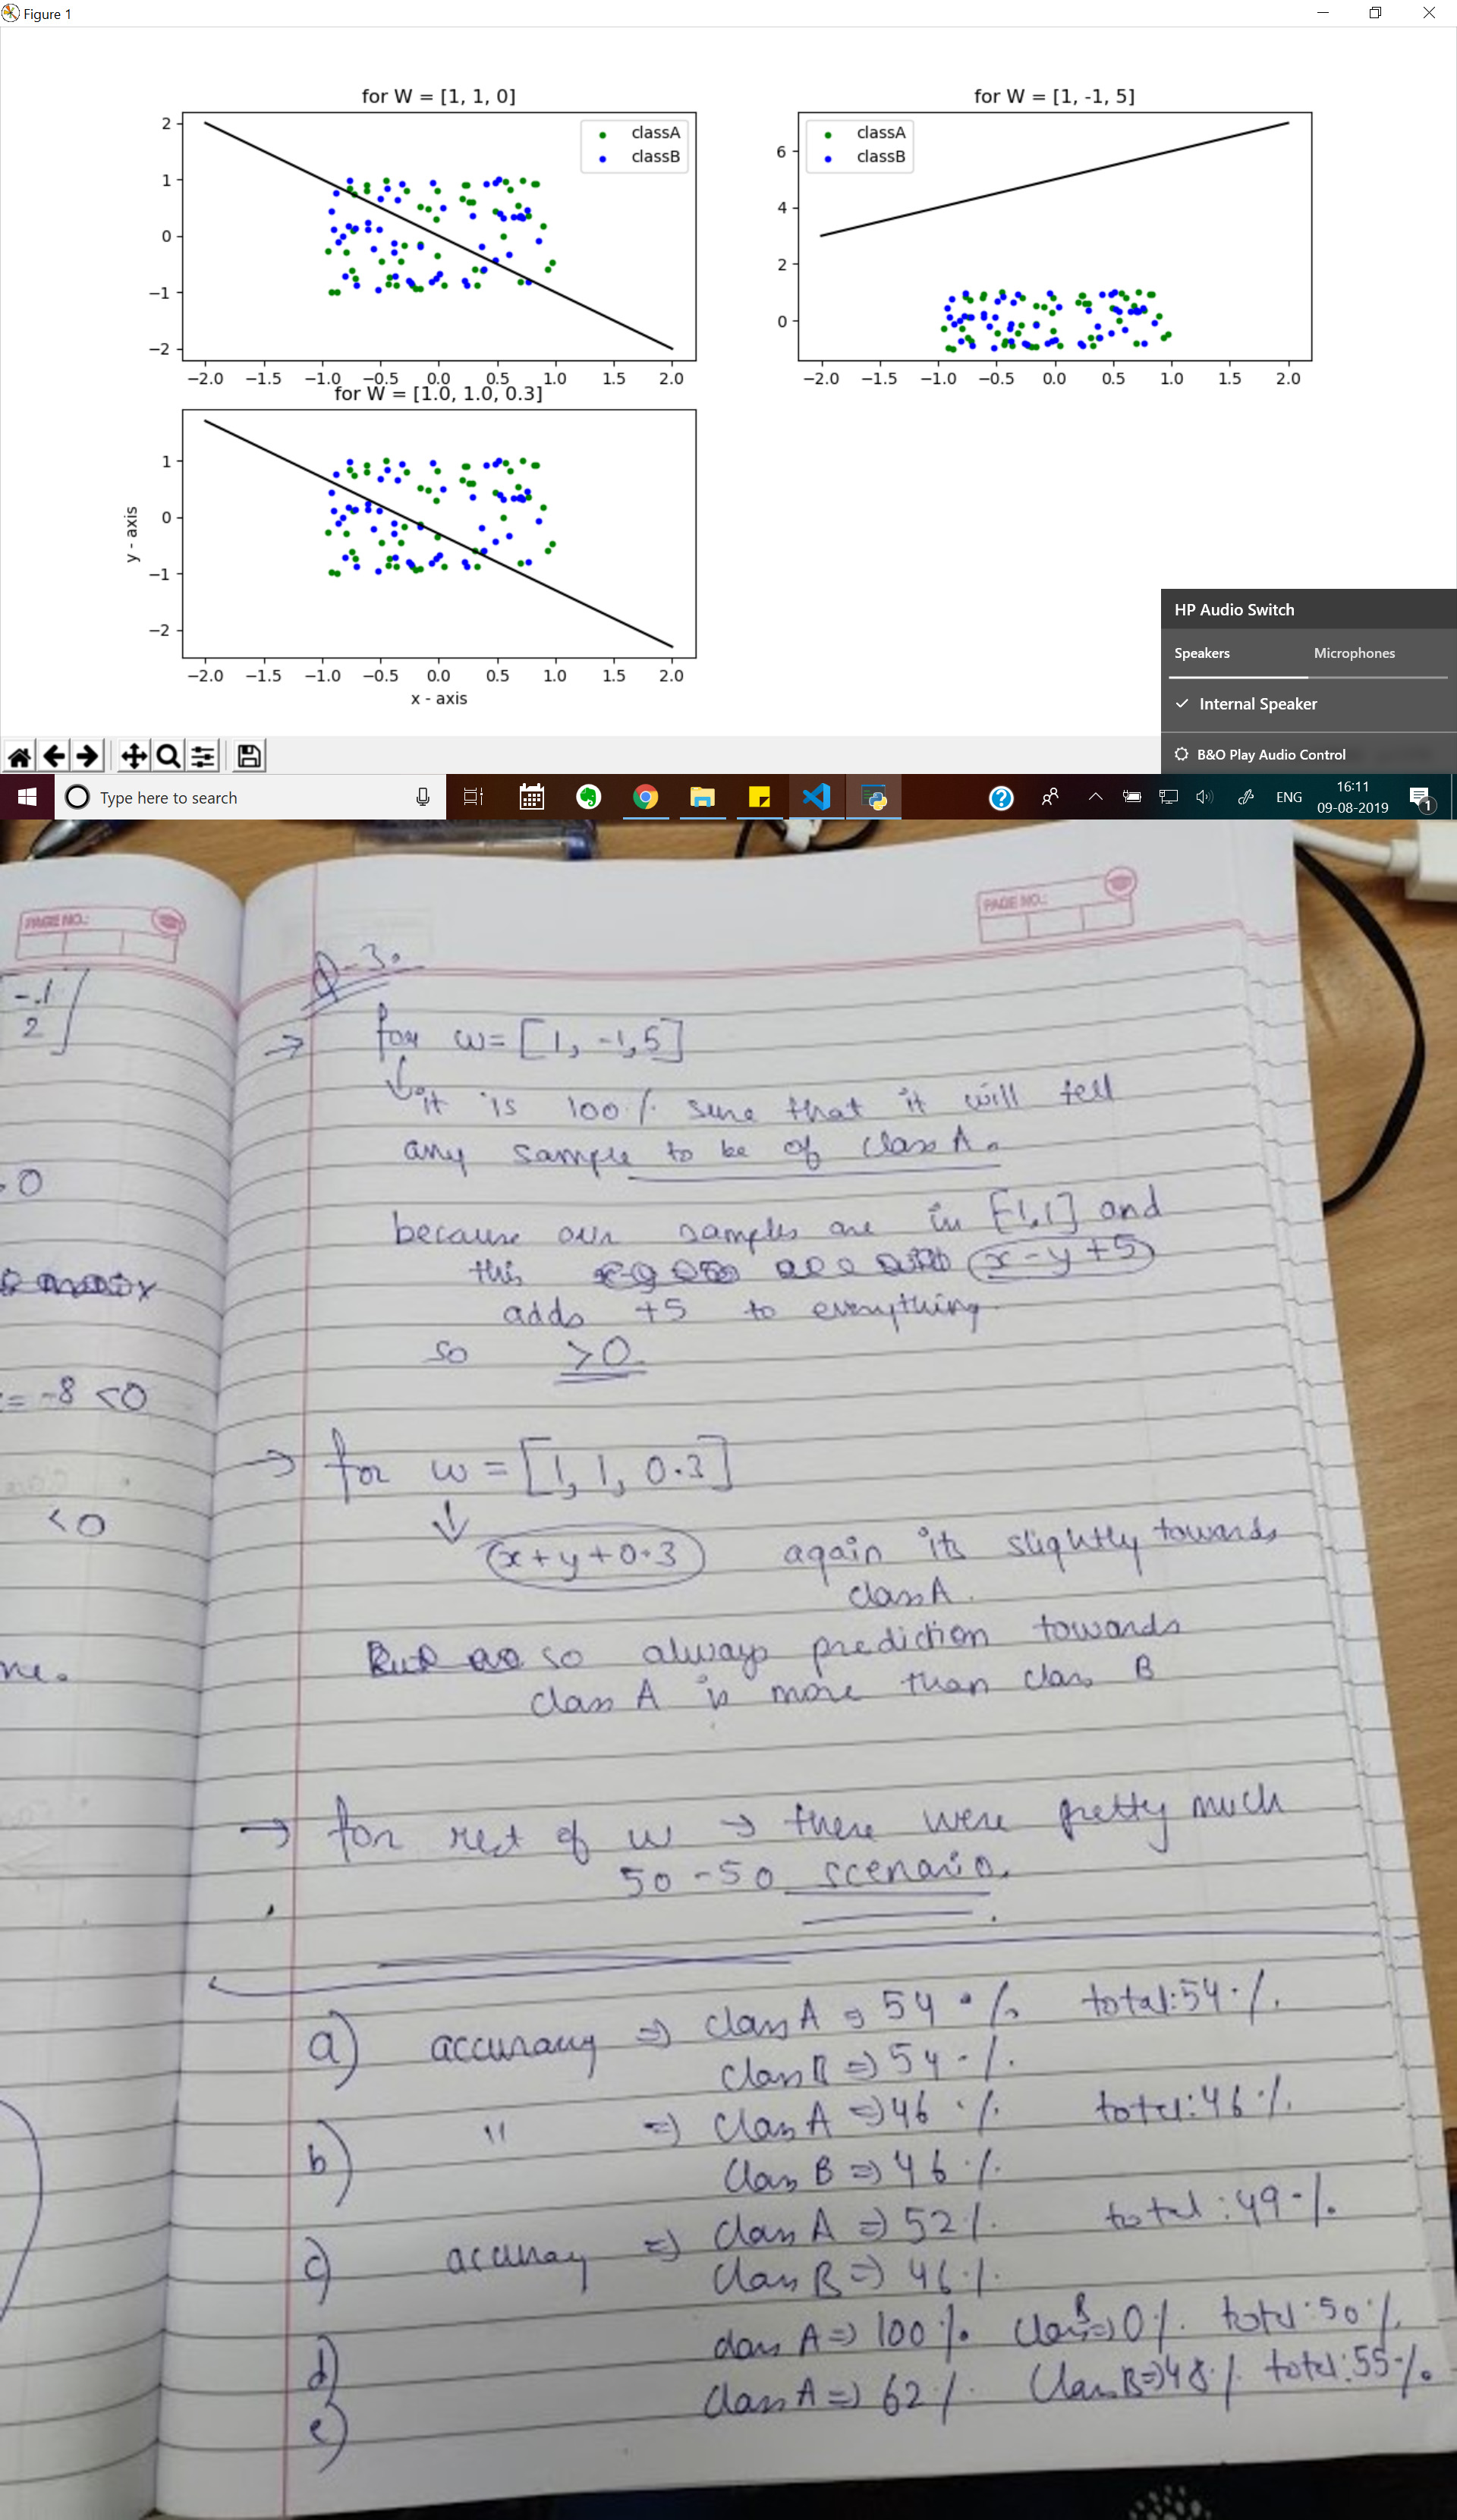 Figure 1
for W = [1, 1, 0]
classA
classB
2
1
0
−1
−2
−2.0 −1.5 −1.0 −0.5 0.0 0.5 1.0 1.5 2.0
for W = [1, -1, 5]
classA
classB
6
4
2
0
−2.0 −1.5 −1.0 −0.5 0.0 0.5 1.0 1.5 2.0
for W = [1.0, 1.0, 0.3]
1
0
−1
−2
y - axis
−2.0 −1.5 −1.0 −0.5 0.0 0.5 1.0 1.5 2.0
x - axis
HP Audio Switch
Speakers Microphones
Internal Speaker
B&O Play Audio Control
Type here to search
ENG
16:11
09-08-2019
1
PAGE NO.:
PAGE NO.:
-.1
2
0
= -8 <0
<0
Q-3.
→ for w = [1, -1, 5]
it is 100% sure that it will tell
any sample to be of class A.
because our samples are in [-1,1] and
this x-y+5
adds +5 to everything
so >0
→ for w = [1, 1, 0.3]
x+y+0.3 again its slightly towards
class A.
so always prediction towards
class A is more than class B
→ for rest of w → there were pretty much
50-50 scenario.
a) accuracy => class A => 54% total: 54%
class B => 54%
b) " => class A => 46% total: 46%
class B => 46%
c) accuracy => class A => 52% total: 49%
class B => 46%
d) class A => 100% class B => 0% total: 50%
e) class A => 62% class B => 48% total: 55%